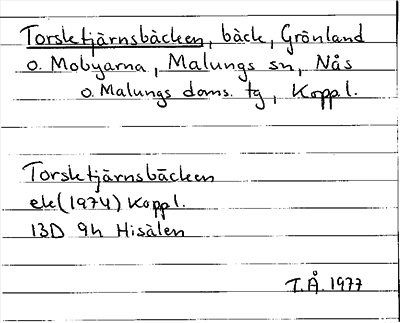 Torsktjärnsbäcken, bäck, Grönland
o. Mobyarna, Malungs sn, Nås
o. Malungs doms. tg, Koppl.
Torsktjärnsbäcken
ek (1974) Koppl.
13D 9h Hisälen
T.Å. 1977